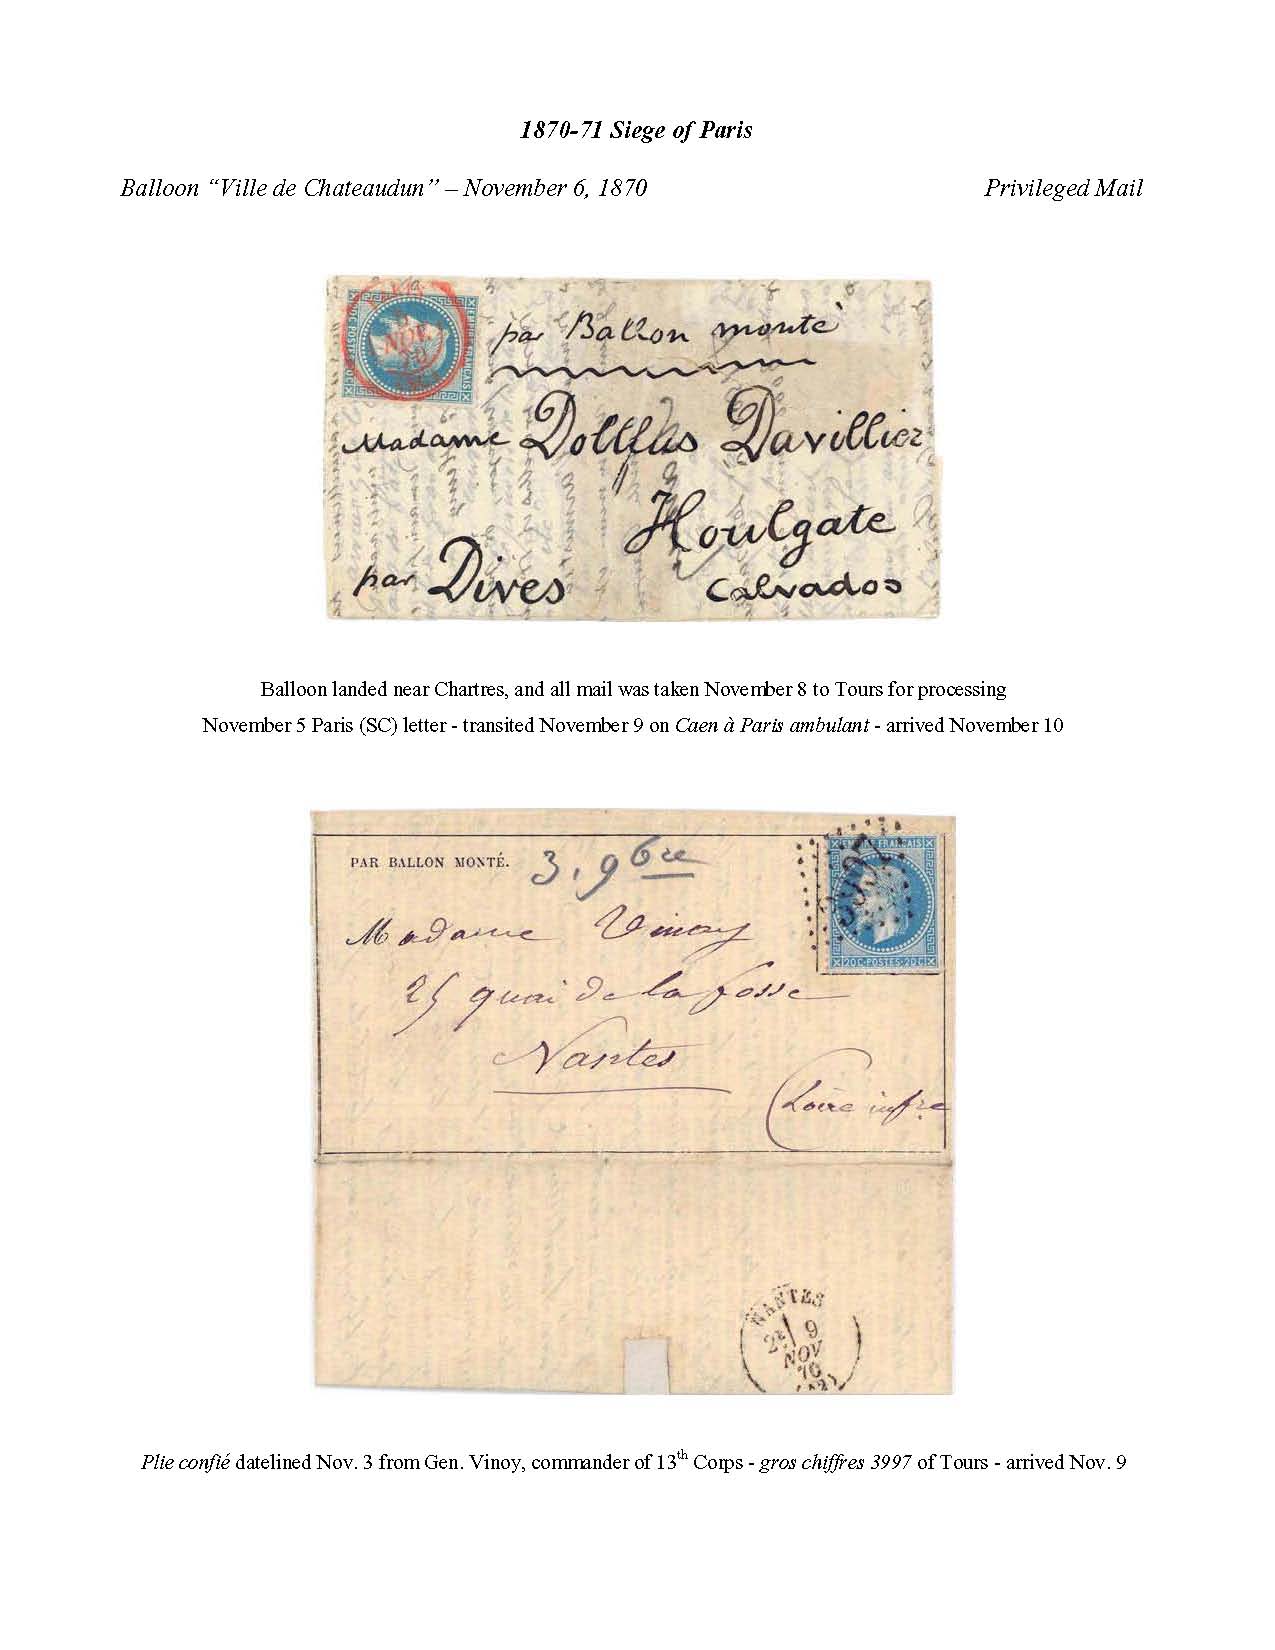 1870-71 Siege of Paris
Balloon “Ville de Chateaudun” – November 6, 1870 Privileged Mail
EMPIRE FRANÇAIS
NOV.
70
par Ballon monté
Madame Dollfus Davillier
Houlgate
par Dives Calvados
Balloon landed near Chartres, and all mail was taken November 8 to Tours for processing
November 5 Paris (SC) letter - transited November 9 on Caen à Paris ambulant - arrived November 10
PAR BALLON MONTÉ. 3. 9bre
EMPIRE FRANÇAIS
3997
20C-POSTES-20C
Madame Vinoy
25 quai de la fosse
Nantes
Loire infre
NANTES
2E 9
NOV
70
Plie confié datelined Nov. 3 from Gen. Vinoy, commander of 13th Corps - gros chiffres 3997 of Tours - arrived Nov. 9